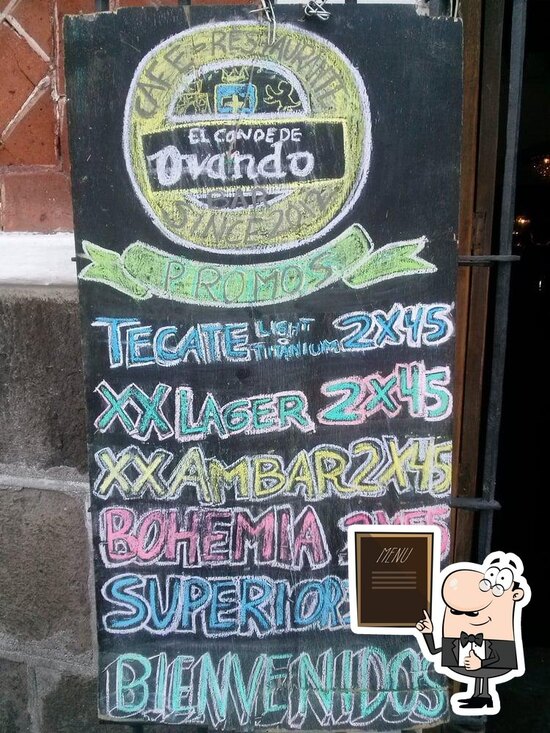 CAFÉ-RESTAURANTE
EL CONDE DE
Ovando
BAR
PROMOS
TECATE LIGHT O TITANIUM 2X45
XX LAGER 2X45
XX AMBAR 2X45
BOHEMIA 2X55
SUPERIOR
BIENVENIDOS
MENU